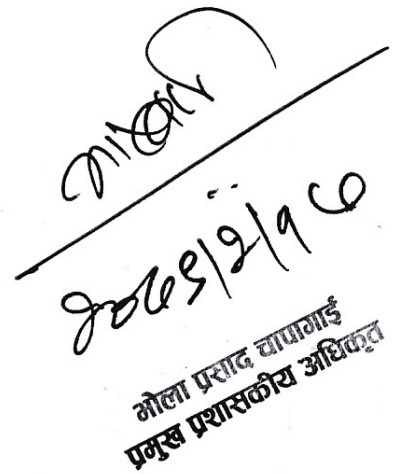 २०७९|२|१७
भोला प्रसाद चापागाई
प्रमुख प्रशासकीय अधिकृत